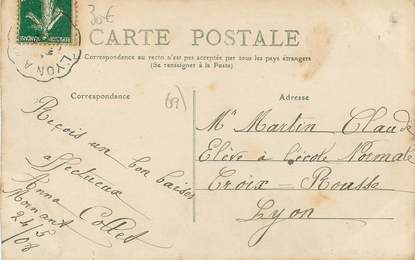 30€
LYON A
CARTE POSTALE
Correspondance au recto n'est pas acceptée par tous les pays étrangers
(Se renseigner à la Poste)
Correspondance
(69)
Adresse
Reçois un bon baiser
affectueux
Anna Collet
Mornant
24/5/08
Mr Martin Claude
Elève à l'école Normale
Croix-Rousse
Lyon